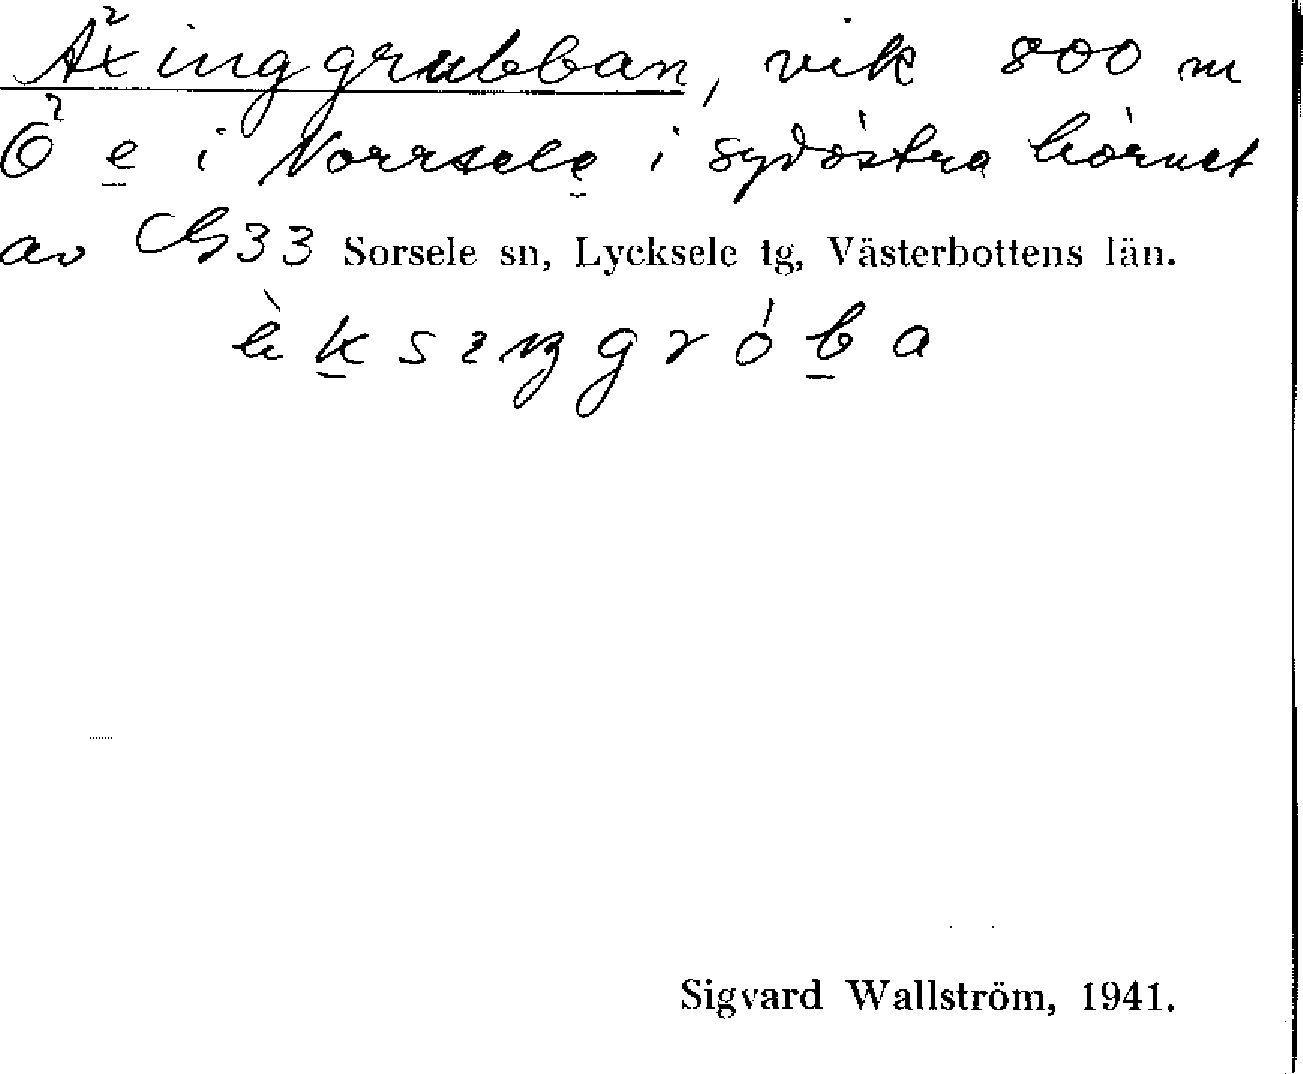 Äxinggrubban, vik 800 m
Ö e i Norrsele i sydöstra hörnet
av G33 Sorsele sn, Lycksele tg, Västerbottens län.
Sigvard Wallström, 1941.